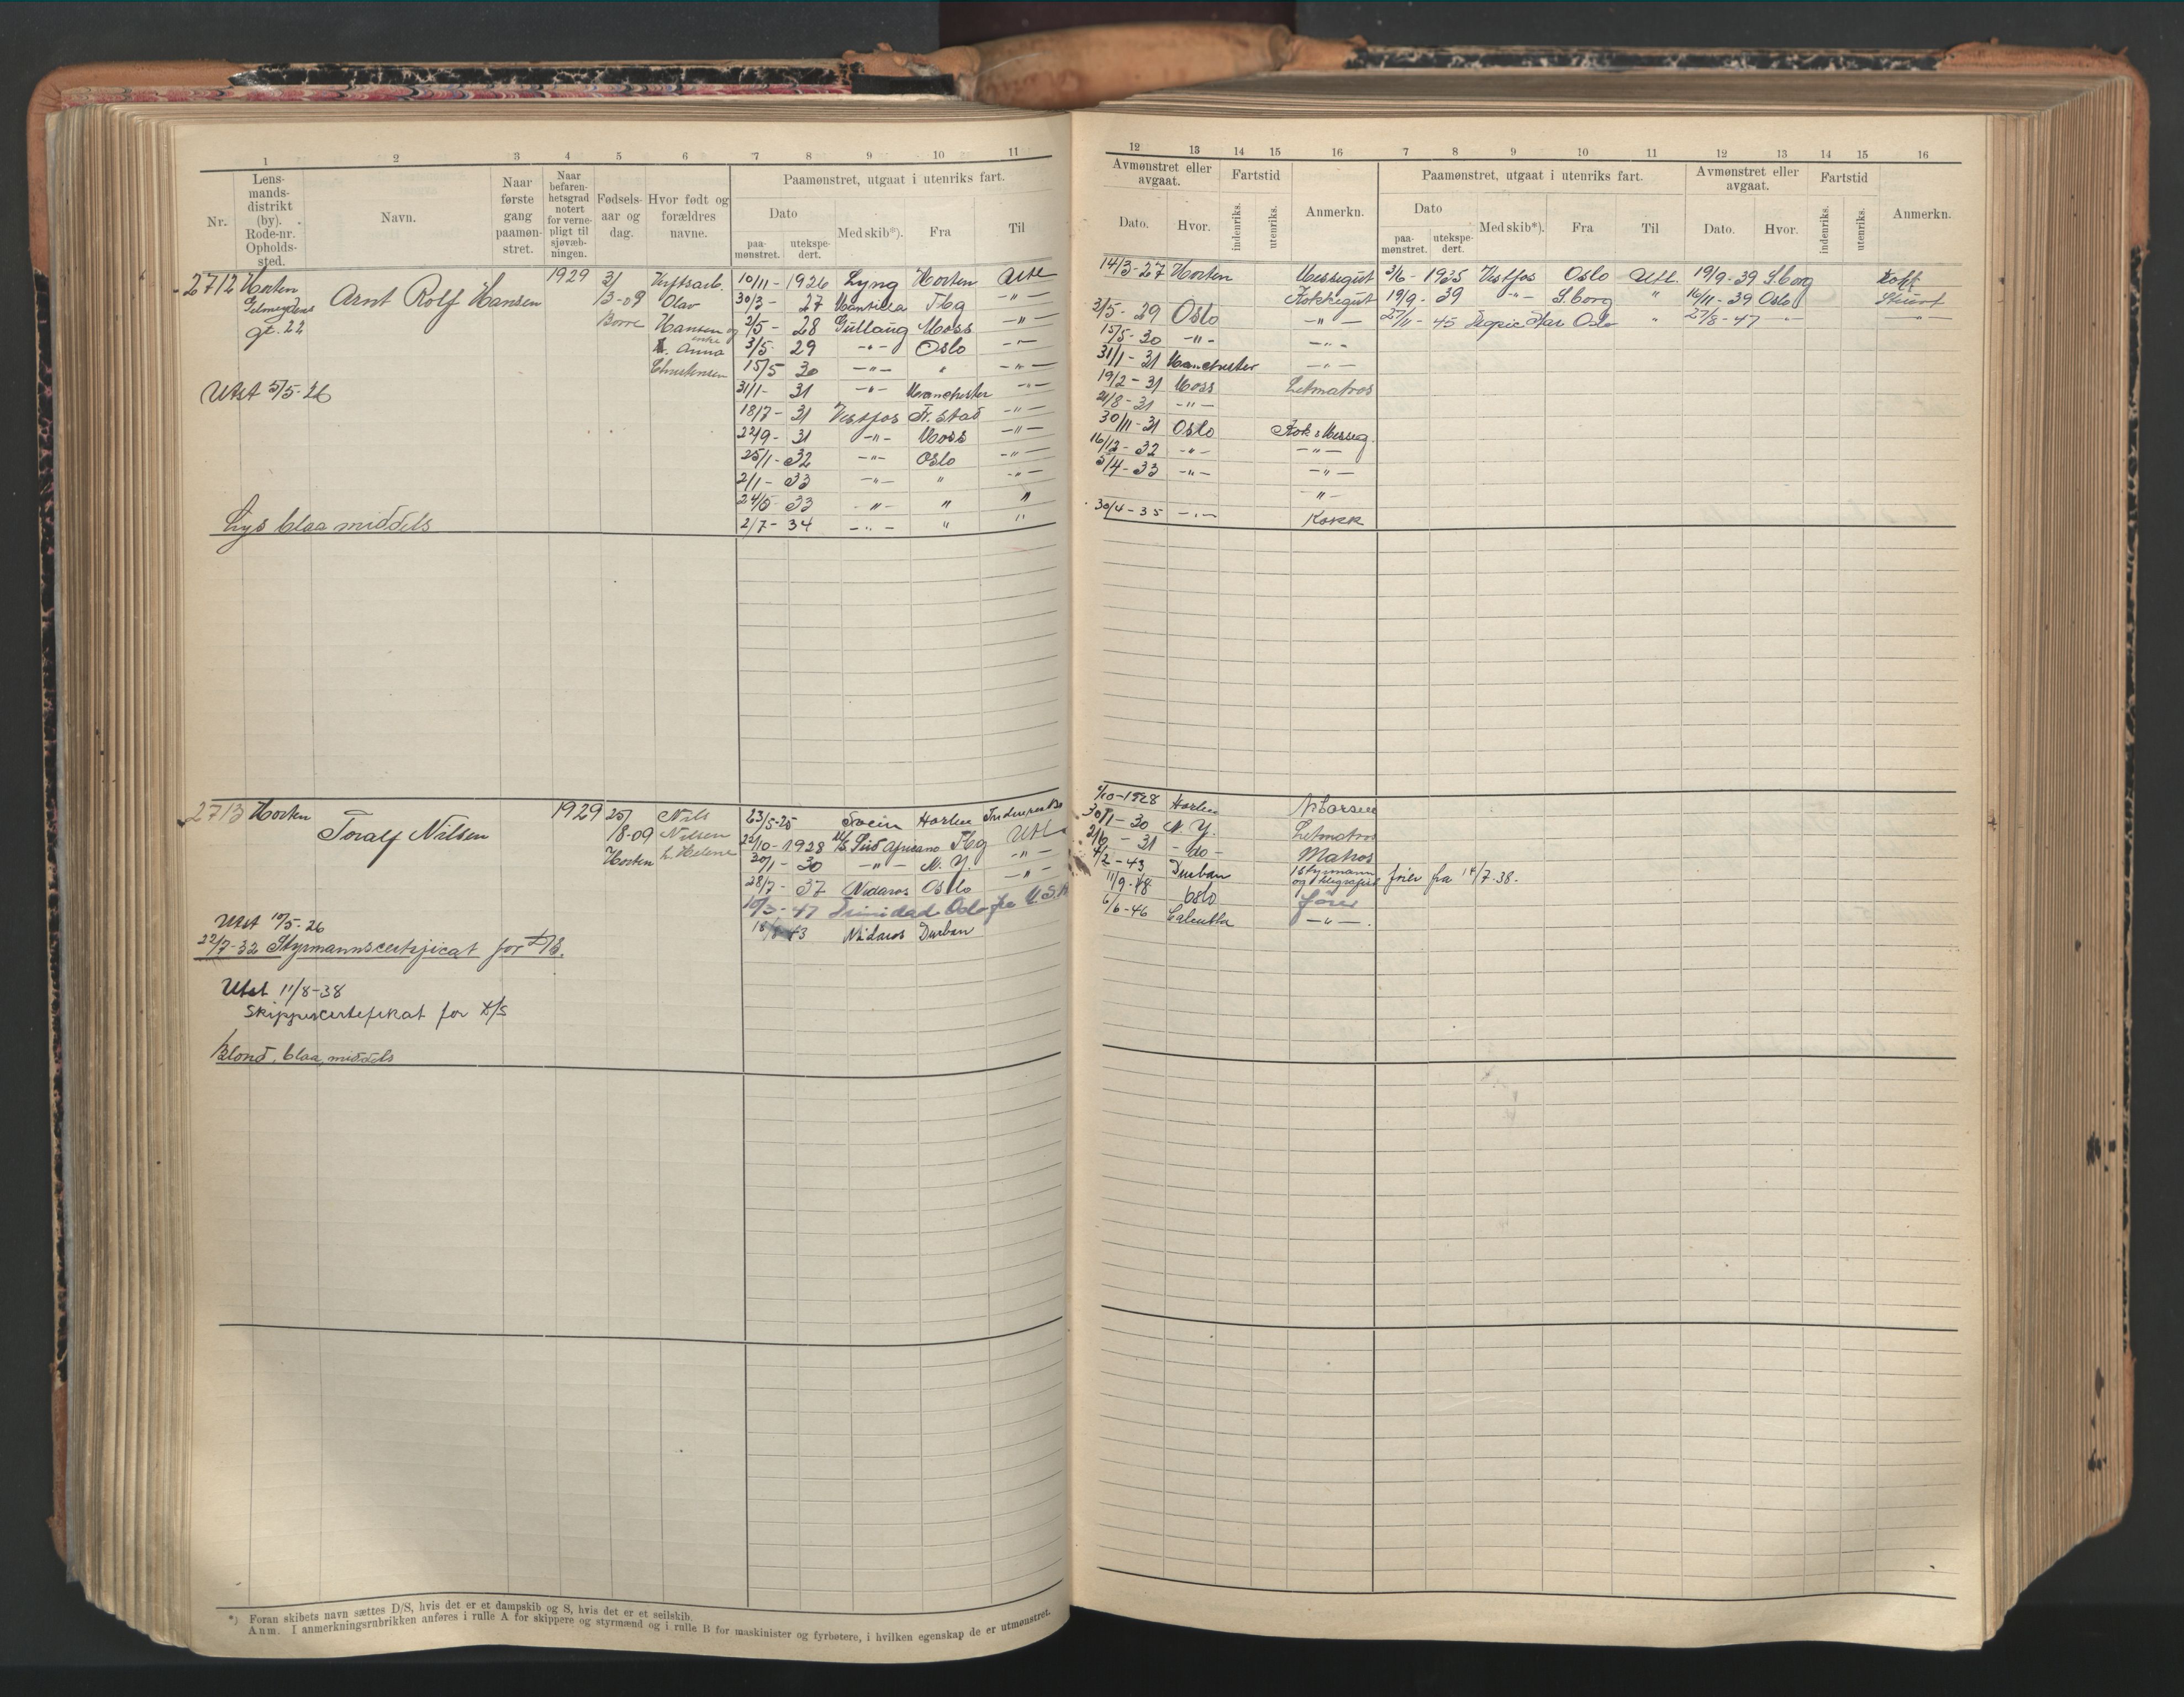 1 2 3 4 5 6 7 8 9 10 11
Nr.
Lens-
mands-
distrikt
(by).
Rode-nr.
Opholds-
sted.
Navn.
Naar
første
gang
paamøn-
stret.
Naar
befaren-
hetsgrad
notert
for verne-
pligt til
sjøvæb-
ningen.
Fødsels-
aar og
dag.
Hvor født og
forældres
navne.
Paamønstret, utgaat i utenriks fart.
Dato
paa-
mønstret.
utekspe-
dert.
Med skib*).
Fra
Til
2712 Horten Arnt Rolf Hansen 1929 3/ Verftsarb. 10/11 - 1926 Lyng Horten Utl
gt. 22
/3-09 Olav 30/3 - 27 Tbg -"-
Borre Hansen og 2/5 - 28 Gullaug Moss -"-
Anna 3/5 29 -"- Oslo -"-
Christensen 15/5 30 -"- " -"-
Utst 5/5-26
31/1- 31 -"- Manchester -"-
18/7- 31 Vestfos Fr.stad -"-
22/9- 31 -"- Moss -"-
25/1- 32 -"- Oslo -"-
2/1- 33 -"- " -"-
24/5- 33 -"- " "
2/7- 34 -"- " "
Lys blaa middels
2713 Horten Toralf Nilsen 1929 25/ Nils 23/5-25 Svein Horten
/8-09 Nilsen 22/10-1928 M/S Sud Africano Tbg Utl
Horten h. Helene 30/1- 30 -"- N.Y. -"-
28/7- 37 Nidaros Oslo -"-
10/3-47 Trinidad Oslo fra U.S.A
43 Nidaros Durban
Utst 10/5-26
22/7-32 Styrmannscertificat for D/S.
Utst 11/8-38
Skippercertefikat for D/S
Blond, blaa, middels
*) Foran skibets navn sættes D/S, hvis det er et dampskib og S, hvis det er et seilskib.
Anm. I anmerkningsrubrikken anføres i rulle A for skippere og styrmænd og i rulle B for maskinister og fyrbøtere, i hvilken egenskap de er utmønstret.
12 13 14 15 16 7 8 9 10 11 12 13 14 15 16
Avmønstret eller
avgaat.
Dato.
Hvor.
Fartstid
indenriks.
utenriks.
Anmerkn.
Paamønstret, utgaat i utenriks fart.
Dato
paa-
mønstret.
utekspe-
dert.
Med skib*).
Fra
Til
Avmønstret eller
avgaat.
Dato.
Hvor.
Fartstid
indenriks.
utenriks.
Anmerkn.
14/3-27 Horten Messegut 3/6- 1935 Vestfos Oslo Utl. 19/9-39 S.borg Kokk
Kokkegut 19/9- 39 -"- S.borg " 16/11-39 Oslo Stuert
3/5-29 Oslo -"- 27/11-45 Tropic Star Oslo " 27/8-47 -"- -"-
15/5-30 -"- -"-
31/1-31 Manchester -"-
19/2-31 Moss Letmatros
21/8-31 -"-
30/11-31 Oslo Kok & Messeg.
16/12-32 -"- -"-
5/4-33 -"- -"-
-"-
30/4-35 -"- Kokk
/10-1928 Horten
30/1-30 N.Y. Letmatros
2/6-31 -do- Matros
4/2-43 Durban 1 Styrmann og telegrafist fører fra 14/7-38.
11/9-48 Oslo fører
6/6-46 Calcutta -"-.